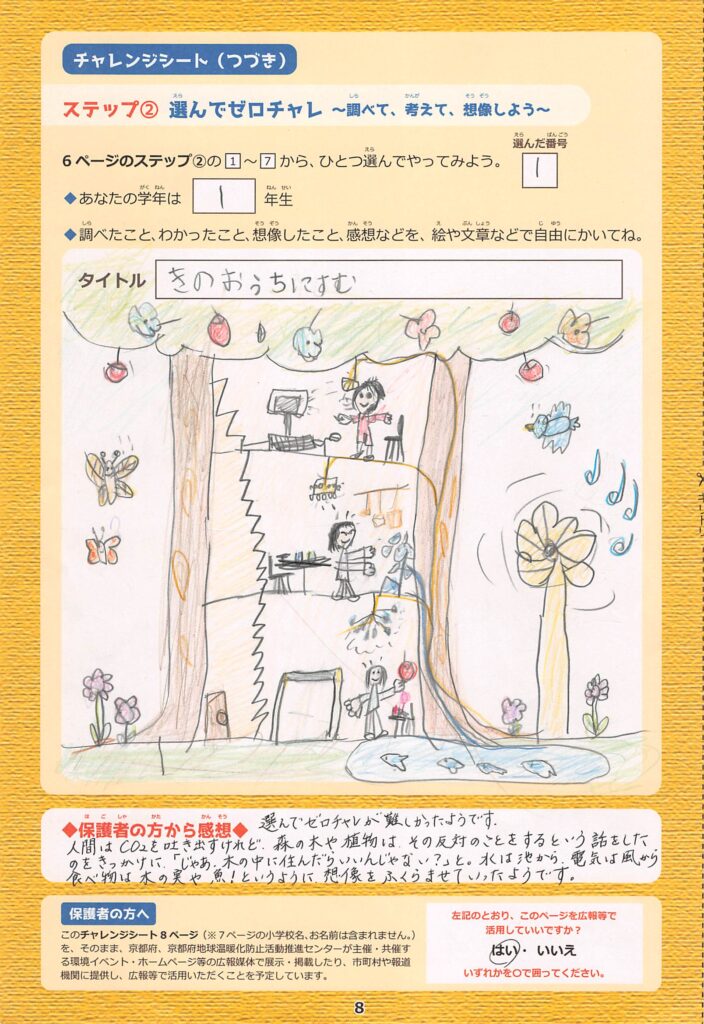 チャレンジシート（つづき）
ステップ② 選んでゼロチャレ ～調べて、考えて、想像しよう～
6ページのステップ②の1～7から、ひとつ選んでやってみよう。
選んだ番号
1
◆あなたの学年は 1 年生
◆調べたこと、わかったこと、想像したこと、感想などを、絵や文章などで自由にかいてね。
タイトル きのおうちにすむ
◆保護者の方から感想◆ 選んでゼロチャレが難しかったようです。
人間はCO₂を吐き出すけれど、森の木や植物は、その反対のことをするという話をした
のをきっかけに、「じゃあ、木の中に住んだらいいんじゃない？」と。水は池から、電気は風から
食べ物は木の実や魚！というように、想像をふくらませていったようです。
保護者の方へ
このチャレンジシート8ページ（※7ページの小学校名、お名前は含まれません。）
を、そのまま、京都府、京都府地球温暖化防止活動推進センターが主催・共催す
る環境イベント・ホームページ等の広報媒体で展示・掲載したり、市町村や報道
機関に提供し、広報等で活用いただくことを予定しています。
左記のとおり、このページを広報等で
活用していいですか？
はい・いいえ
いずれかを○で囲ってください。
8